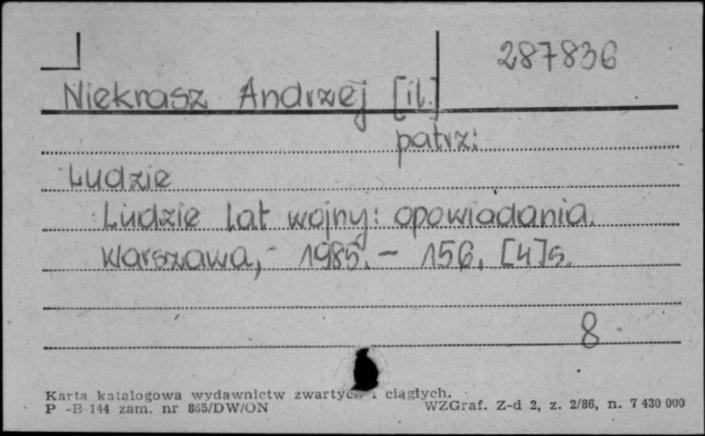 287836
Niekrasz Andrzej [il.]
patrz:
Ludzie
Ludzie lat wojny: opowiadania.
Warszawa, 1985. - 156, [4]s.
8
Karta katalogowa wydawnictw zwartych i ciągłych.
P -B-144 zam. nr 865/DW/ON WZGraf. Z-d 2, z. 2/86, n. 7 430 000